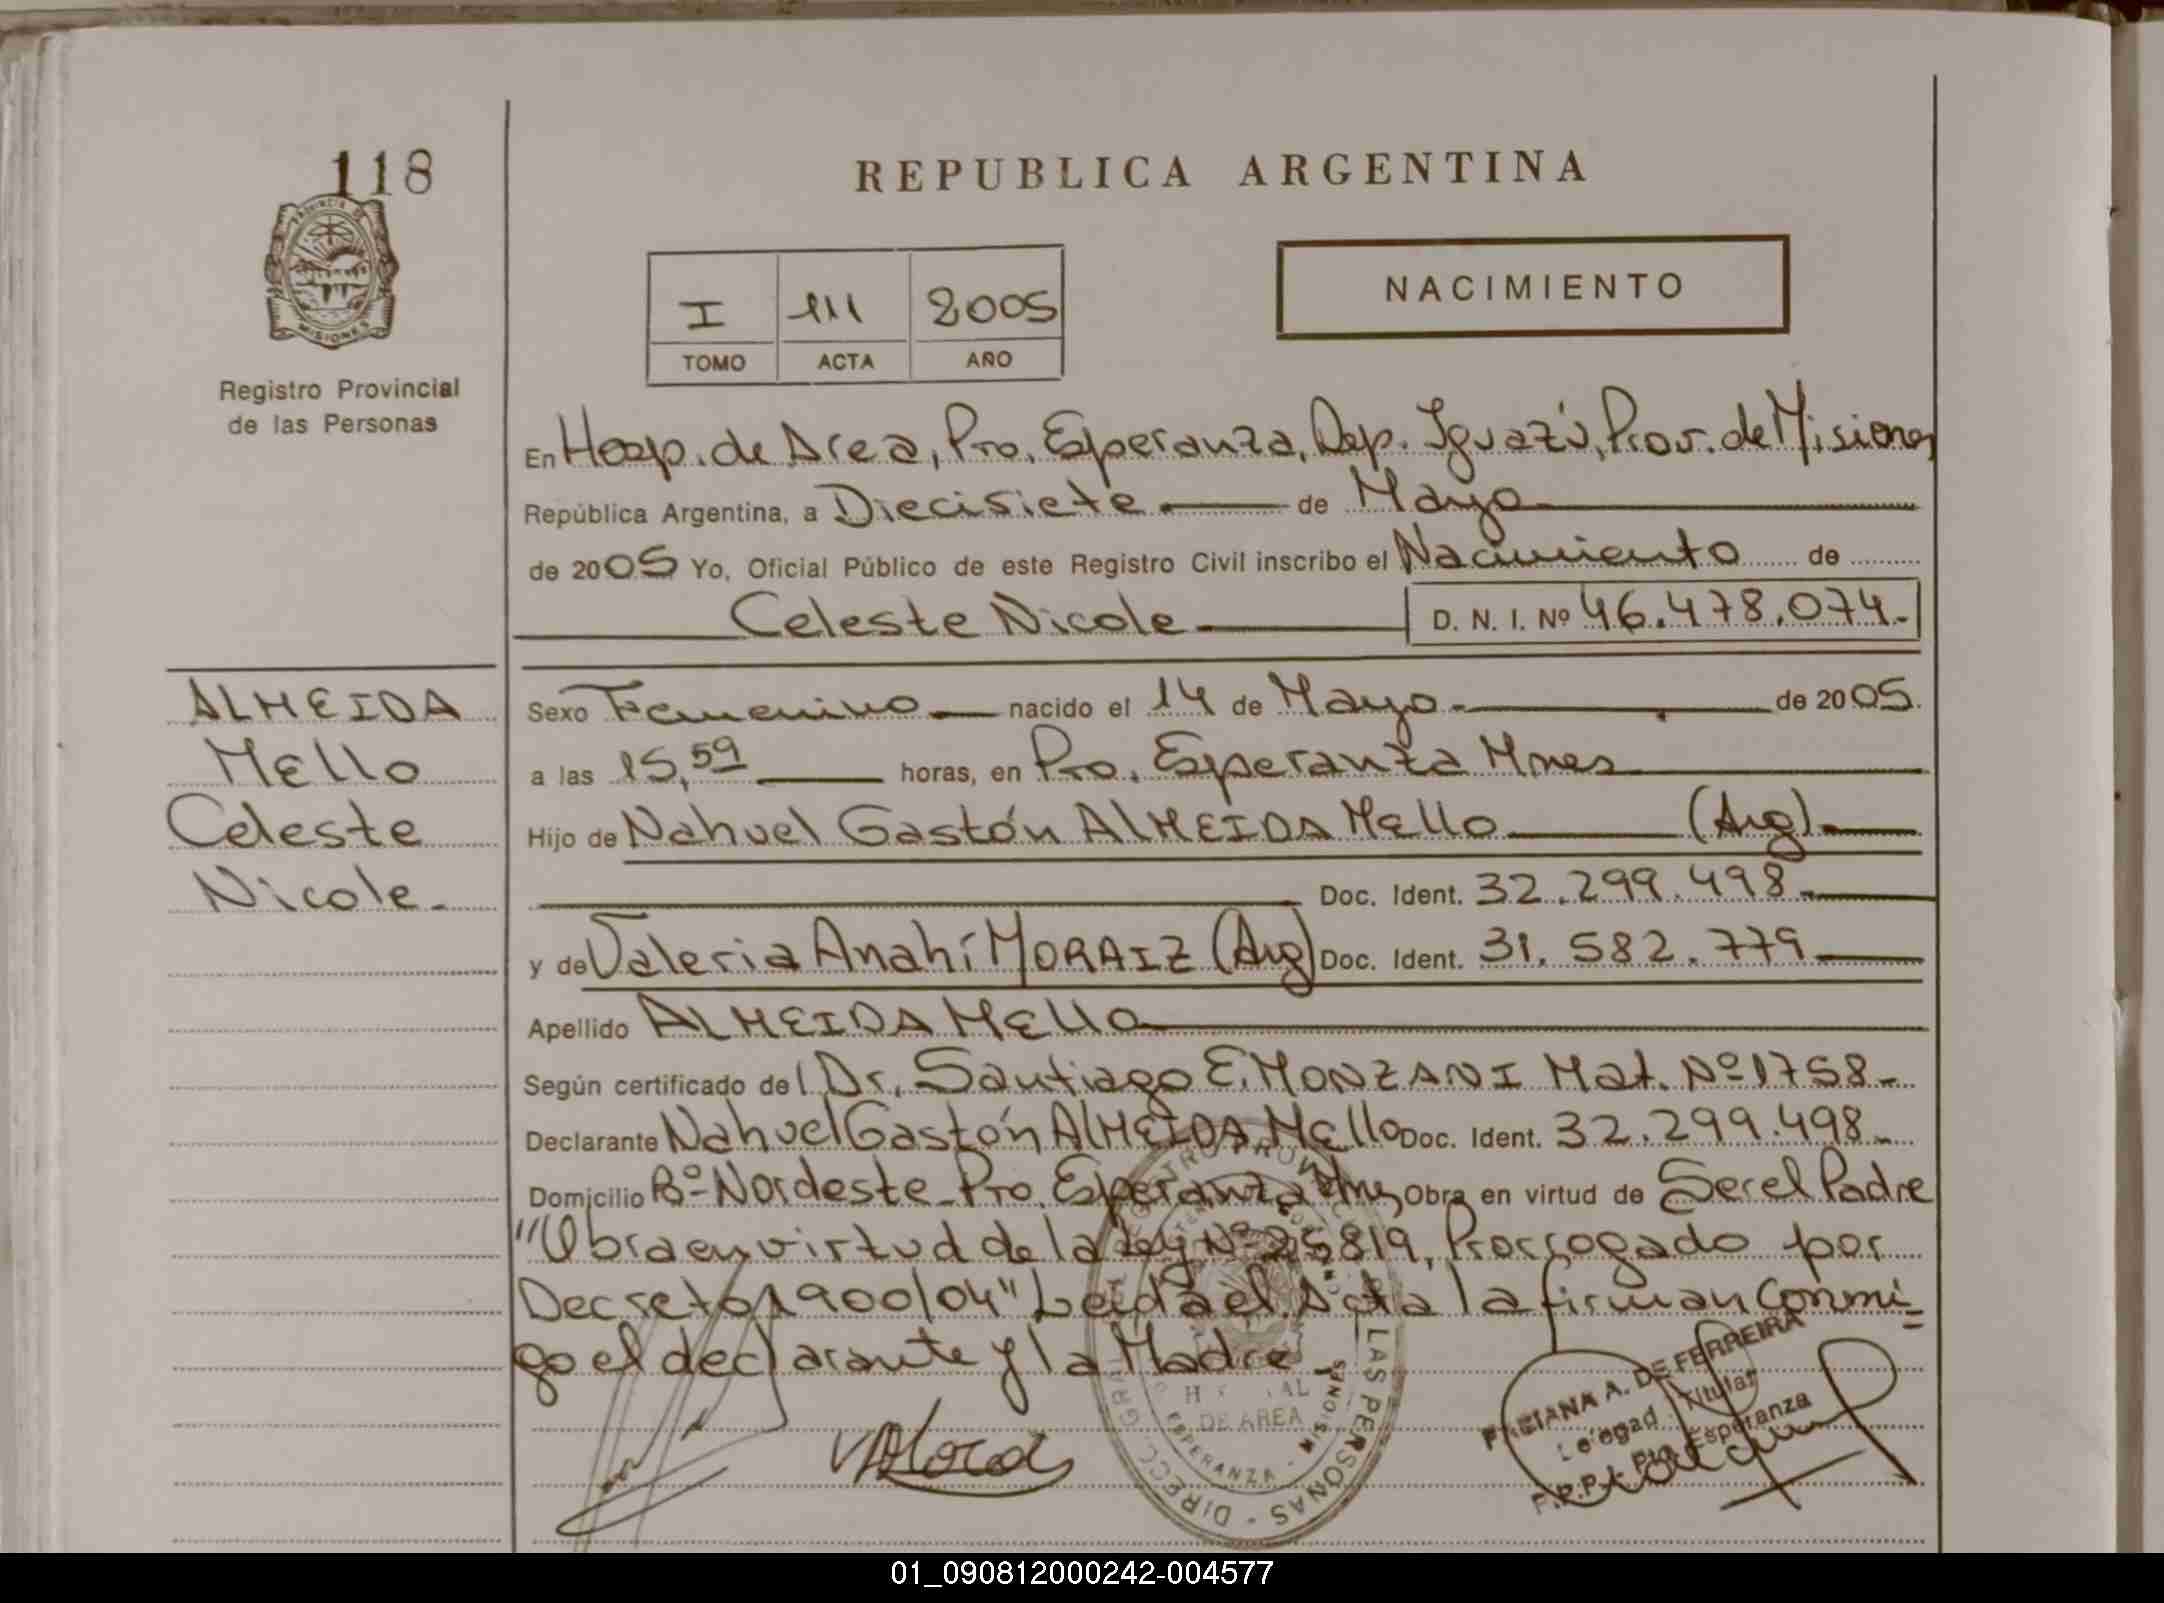 118
REPUBLICA ARGENTINA
PROVINCIA DE
MISIONES
NACIMIENTO
I 111 2005
TOMO ACTA AÑO
Registro Provincial
de las Personas
En Hosp. de Area, Pto. Esperanza, Dep. Iguazú, Prov. de Misiones
República Argentina, a Diecisiete de Mayo
de 2005 Yo, Oficial Público de este Registro Civil inscribo el Nacimiento de
Celeste Nicole D. N. I. Nº 46.478.074.-
ALMEIDA
Mello
Celeste
Nicole.-
Sexo Femenino nacido el 14 de Mayo.- de 2005.
a las 15,59 horas, en Pto. Esperanza Mnes
Hijo de Nahuel Gastón ALMEIDA Mello (Arg).-
Doc. Ident. 32.299.498.-
y de Valeria Anahí MORAIZ (Arg) Doc. Ident. 31.582.779
Apellido ALMEIDA Mello
Según certificado del Dr. Santiago E. MONZANI Mat. Nº 1758.-
Declarante Nahuel Gastón ALMEIDA Mello Doc. Ident. 32.299.498.-
Domicilio Bº Nordeste - Pto. Esperanza Mnes Obra en virtud de Ser el Padre
"Obra en virtud de la Ley Nº 25819, Prorrogado por
Decreto 1900/04" Leida el Acta la firman Conmi=
go el declarante y la Madre.-
DE AREA
ESPERANZA - MISIONES
LAS PERSONAS - DIRECC. GRAL.
A. DE FERREIRA
Titular
Pto. Esperanza
01_090812000242-004577